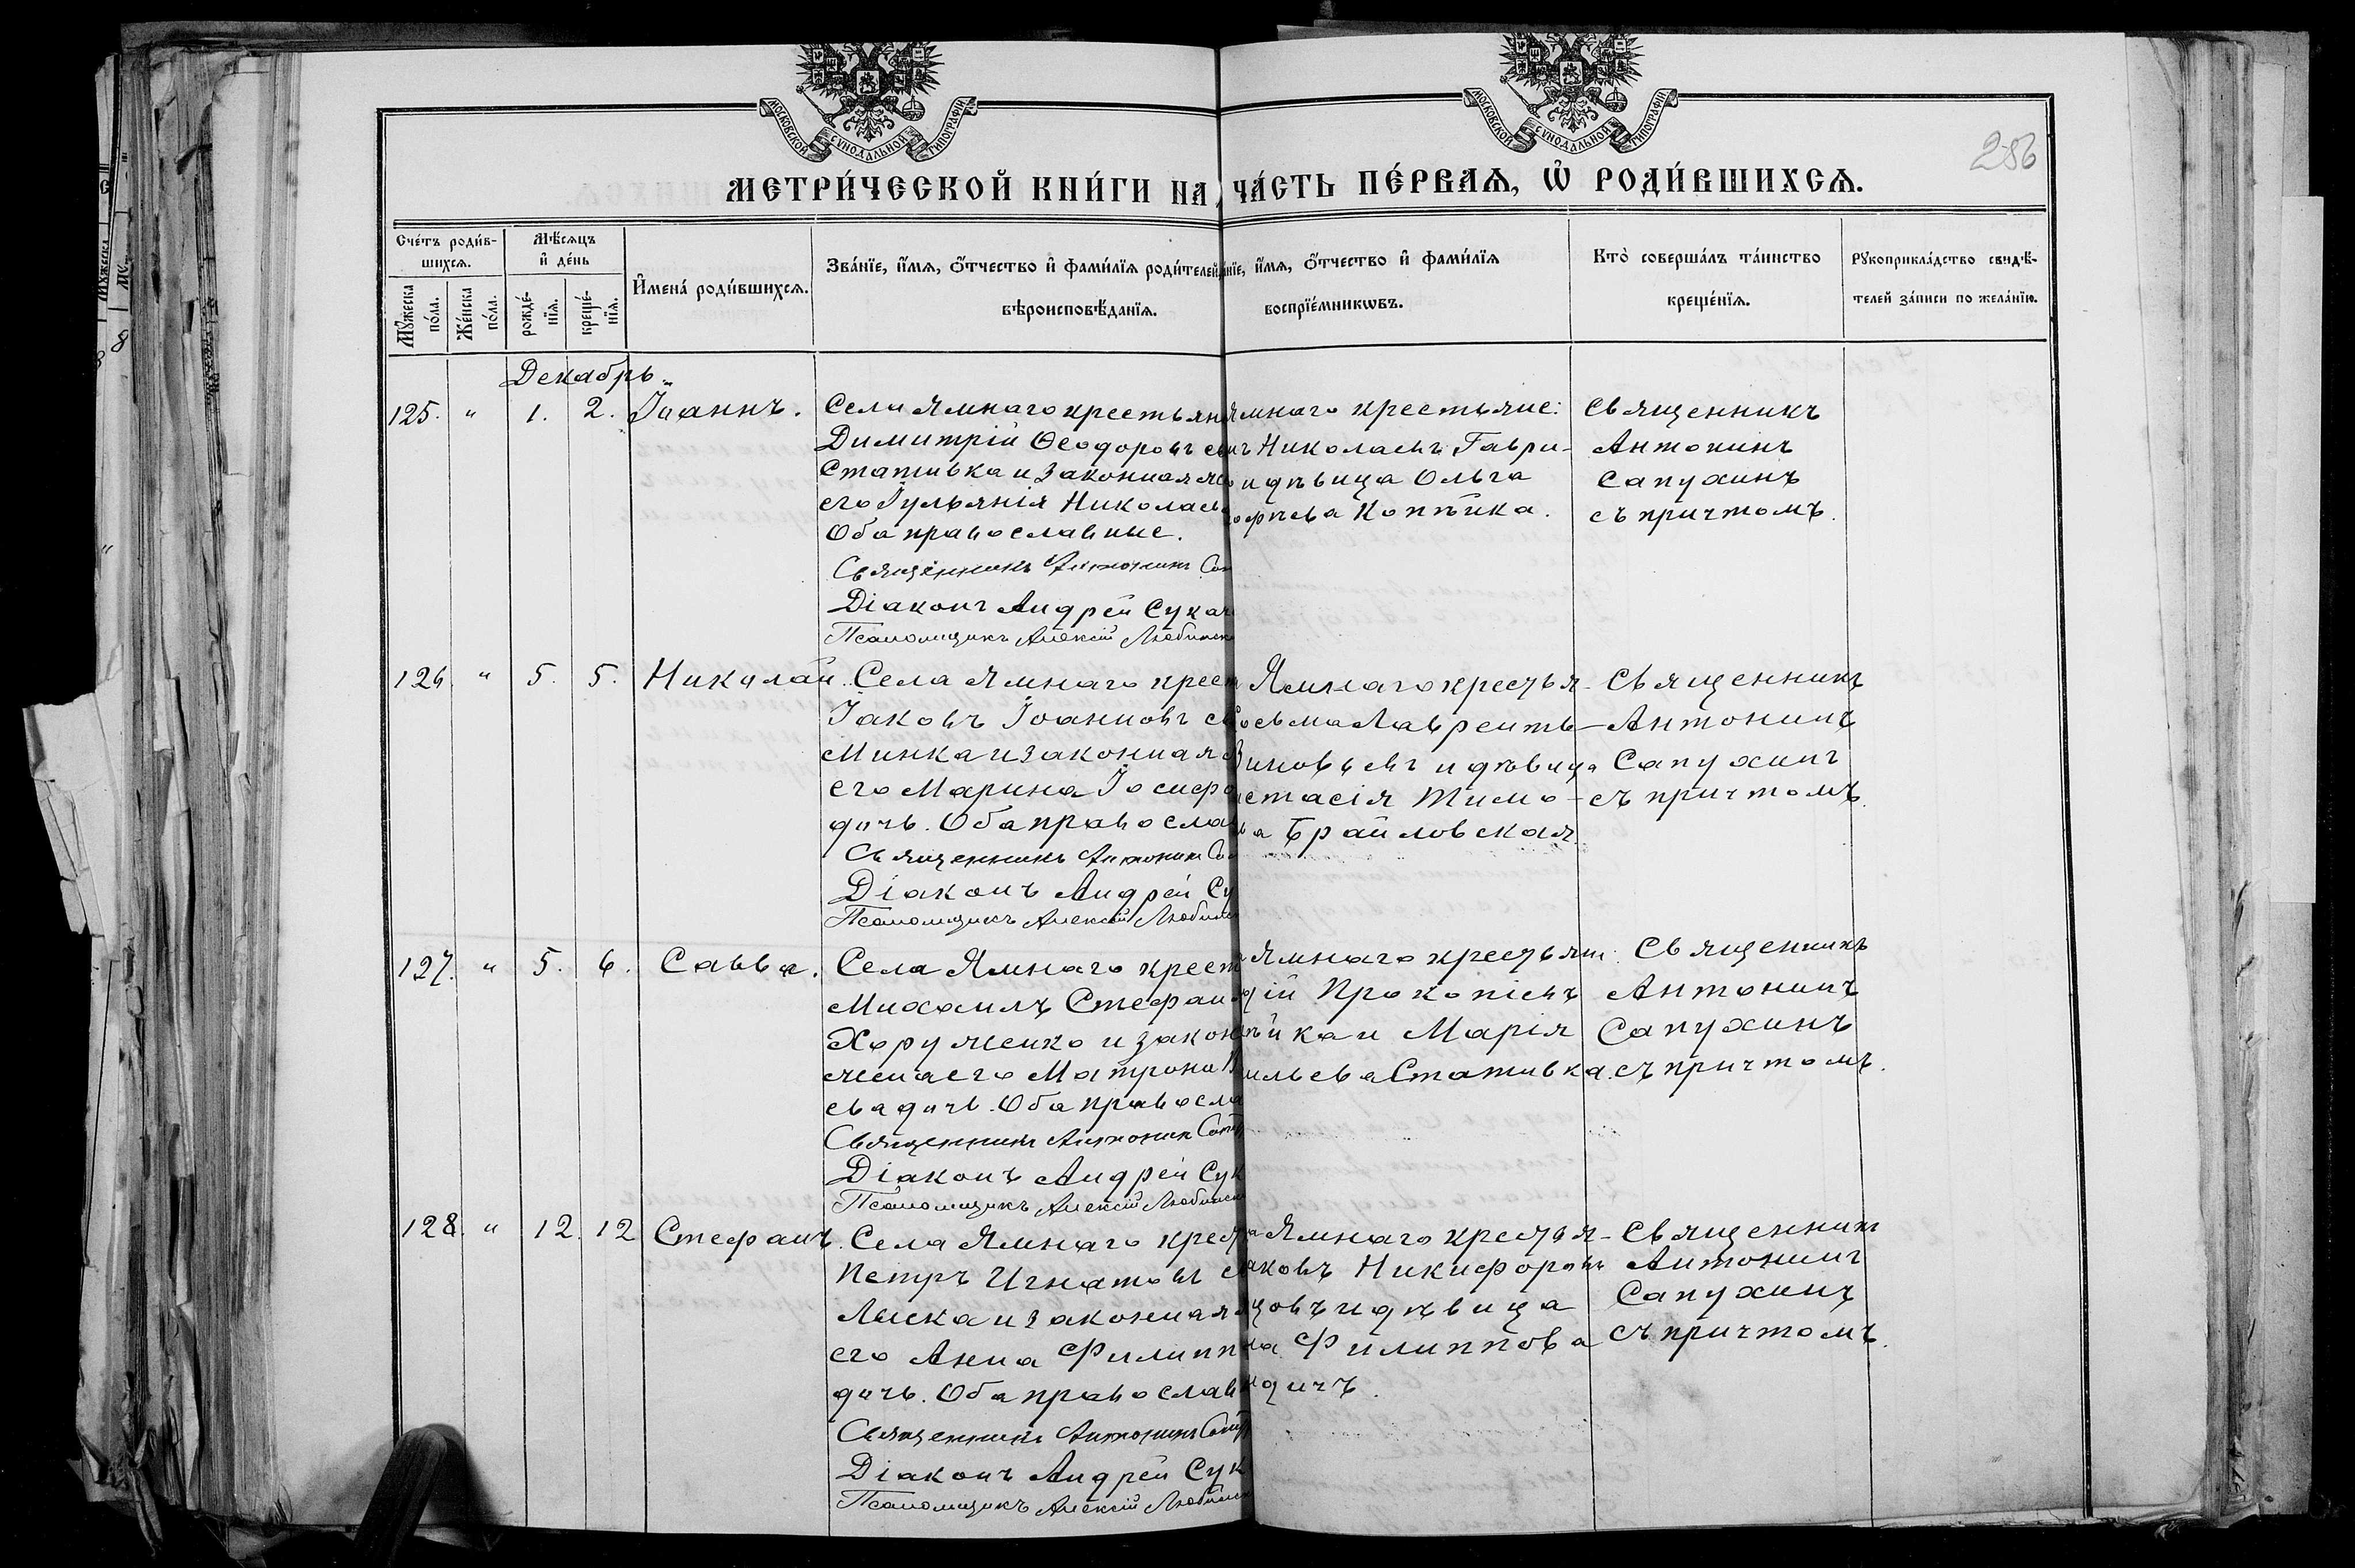 МОСКОВСКОЙ СУНОДАЛЬНОЙ ТИПОГРАФІИ
МОСКОВСКОЙ СУНОДАЛЬНОЙ ТИПОГРАФІИ
286
МЕТРИ́ЧЕСКОЙ КНИ́ГИ НА
ЧА́СТЬ ПЕ́РВАѦ, Ѡ҆ РОДИ́ВШИХСѦ.
Сче́тъ роди́в-
шихсѧ.
Мꙋ́жеска по́ла.
Же́нска по́ла.
Мѣ́сѧцъ
и҆ де́нь
рожде́-
нїѧ.
креще́-
нїѧ.
И҆мена́ роди́вшихсѧ.
Зва́нїе, и҆́мѧ, ѻ҆́тчество и҆ фами́лїѧ роди́телей
вѣроисповѣ́данїѧ.
и҆́мѧ, ѻ҆́тчество и҆ фами́лїѧ
воспрїе́мникѡвъ.
Кто̀ соверша́лъ та́инство
креще́нїѧ.
Рꙋкоприкла́дство свидѣ́-
телей за́писи по жела́нїю.
Декабрь
125. " 1. 2. Іоаннъ.
Села Ямнаго крестьян
Димитрій Ѳеодоровъ сы
Стативка и законная же
его Іульянія Николаев
Оба православные.
Священникъ Антонинъ Сап
Діаконъ Андрей Сукач
Псаломщикъ Алексій Любинск
Ямнаго крестьяне:
Николаевъ Гаври-
и дѣвица Ольга
офѣева Копѣйка.
Священникъ
Антонинъ
Сапухинъ
съ причтомъ.
126. " 5. 5. Николай.
Села Ямнаго крест
Іаковъ Іоанновъ сы
Минка и законная
его Марина Іосифо
дочь. Оба правосла
Священникъ Антонинъ Сап
Діаконъ Андрей Су
Псаломщикъ Алексій Любинск
Ямнаго крестья-
осьма Лавренть-
Зиновьевъ и дѣвица
стасія Тимо-
ва Брайловская.
Священникъ
Антонинъ
Сапухинъ
съ причтомъ.
127. " 5. 6. Савва.
Села Ямнаго крест
Михаилъ Стефан
Хоруженко и закон
жена его Матрона В
ева дочь. Оба правосла
Священникъ Антонинъ Сапу
Діаконъ Андрей Сук
Псаломщикъ Алексій Любинск
Ямнаго крестьяне:
дій Прокопіевъ
ѣйка и Марія
ильева Стативка.
Священникъ
Антонинъ
Сапухинъ
съ причтомъ.
128. " 12. 12 Стефанъ.
Села Ямнаго крест
Петръ Игнатовъ сы
Лыска и законная
его Анна Филипп
дочь. Оба православ
Священникъ Антонинъ Сапу
Діаконъ Андрей Сук
Псаломщикъ Алексій Любинск
Ямнаго крестья-
аковъ Никифоровъ
цовъ и дѣвица
на Филиппова
дичъ.
Священникъ
Антонинъ
Сапухинъ
съ причтомъ.